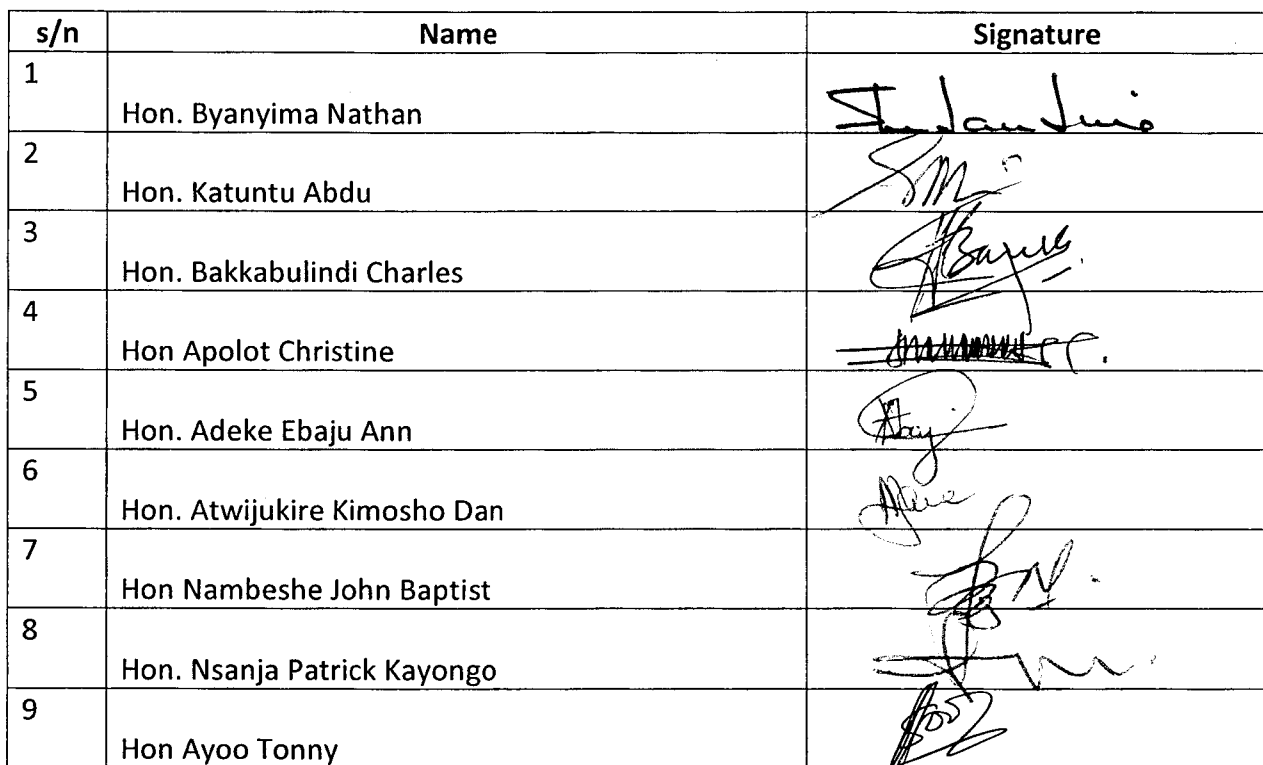 s/n Name Signature
1
Hon. Byanyima Nathan
2
Hon. Katuntu Abdu
3
Hon. Bakkabulindi Charles
4
Hon Apolot Christine
5
Hon. Adeke Ebaju Ann
6
Hon. Atwijukire Kimosho Dan
7
Hon Nambeshe John Baptist
8
Hon. Nsanja Patrick Kayongo
9
Hon Ayoo Tonny